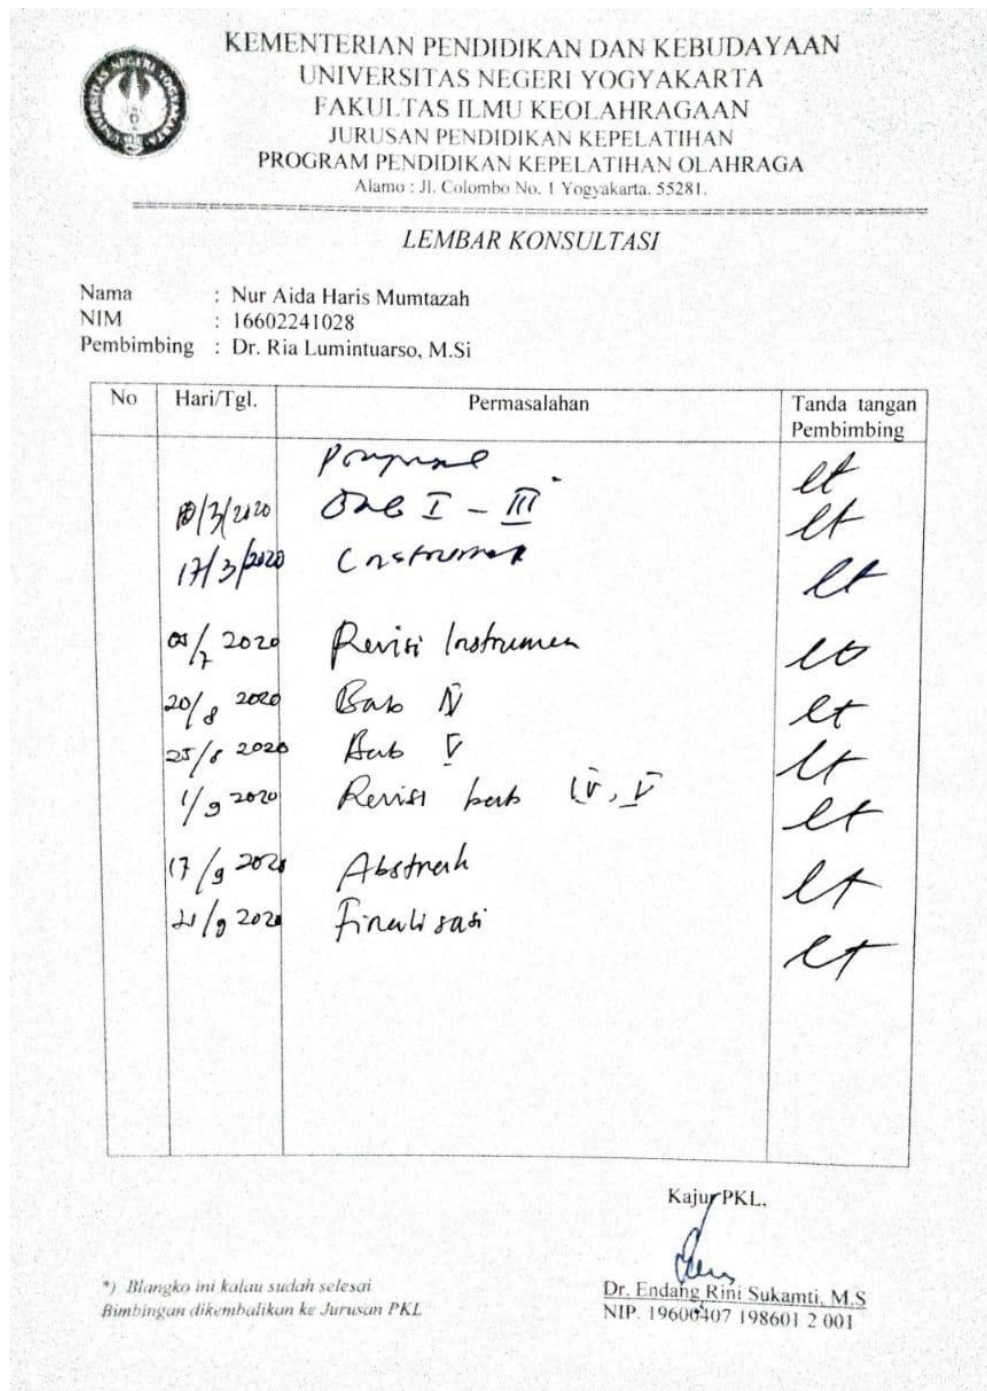 KEMENTERIAN PENDIDIKAN DAN KEBUDAYAAN
UNIVERSITAS NEGERI YOGYAKARTA
FAKULTAS ILMU KEOLAHRAGAAN
JURUSAN PENDIDIKAN KEPELATIHAN
PROGRAM PENDIDIKAN KEPELATIHAN OLAHRAGA
Alamo : Jl. Colombo No. 1 Yogyakarta. 55281.
LEMBAR KONSULTASI
Nama : Nur Aida Haris Mumtazah
NIM : 16602241028
Pembimbing : Dr. Ria Lumintuarso, M.Si
No Hari/Tgl. Permasalahan Tanda tangan
Pembimbing
Proposal
10/3/2020 Bab I - III
17/3/2020 Instrumen
/7 2020 Revisi Instrumen
20/8 2020 Bab IV
25/8 2020 Bab V
1/9 2020 Revisi bab IV, V
17/9 2020 Abstrak
21/9 2020 Finalisasi
Kajur PKL,
*) Blangko ini kalau sudah selesai
Bimbingan dikembalikan ke Jurusan PKL
Dr. Endang Rini Sukamti, M.S
NIP. 19600407 198601 2 001